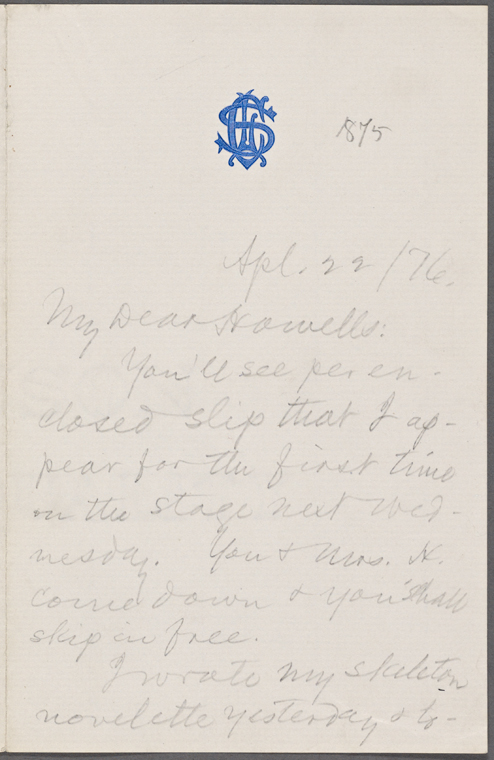 1875
Apl. 22/76.
My Dear Howells:
You'll see per en-
closed slip that I ap-
pear for the first time
on the stage next Wed-
nesday. You & Mrs. H.
come down & you shall
skip in free.
I wrote my skeleton
novelette yesterday & to-